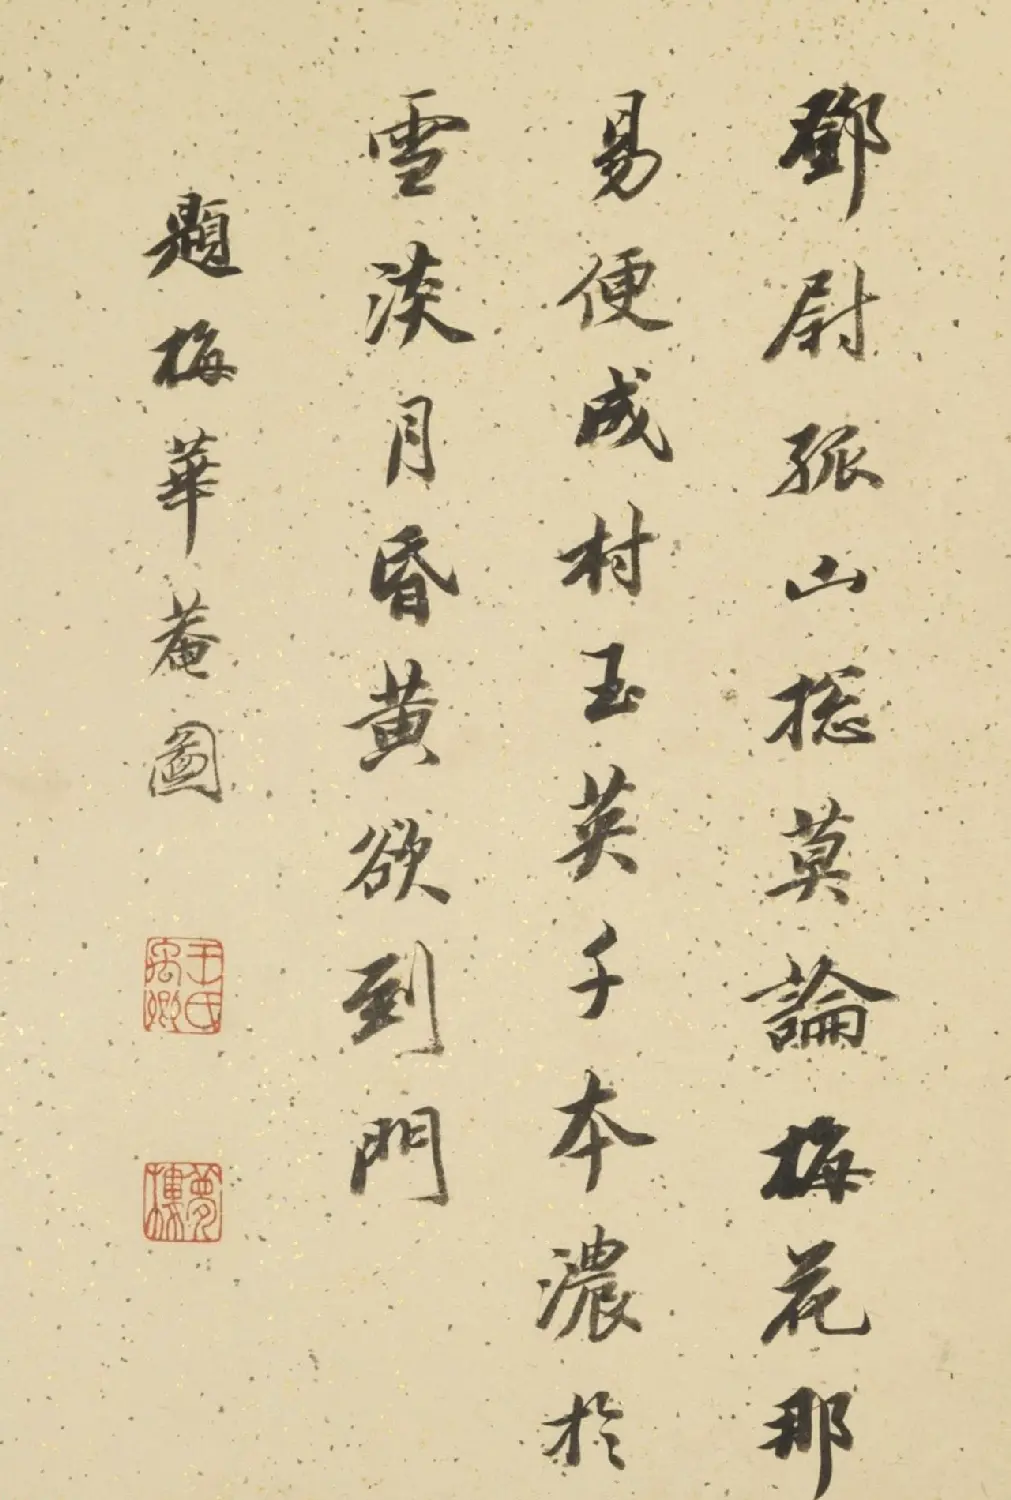 鄧尉孤山揔莫論梅花那
易便成村玉英千本濃於
雪淡月昏黄欲到門
題梅華菴圖
王氏禹卿
夢樓